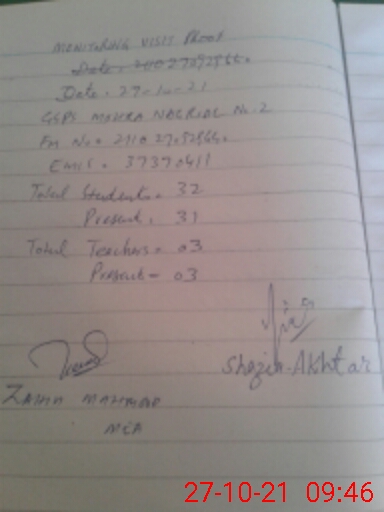 MONITORING VISIT Proof
Date. 27-10-21
GGPS MOHRA NAGRIAL No. 2
EMIS = 37370411
Total Students = 32
Present. 31
Total Teachers = 03
Present = 03
Shazia Akhtar
ZAHID MAHMOOD
MEA
27-10-21 09:46